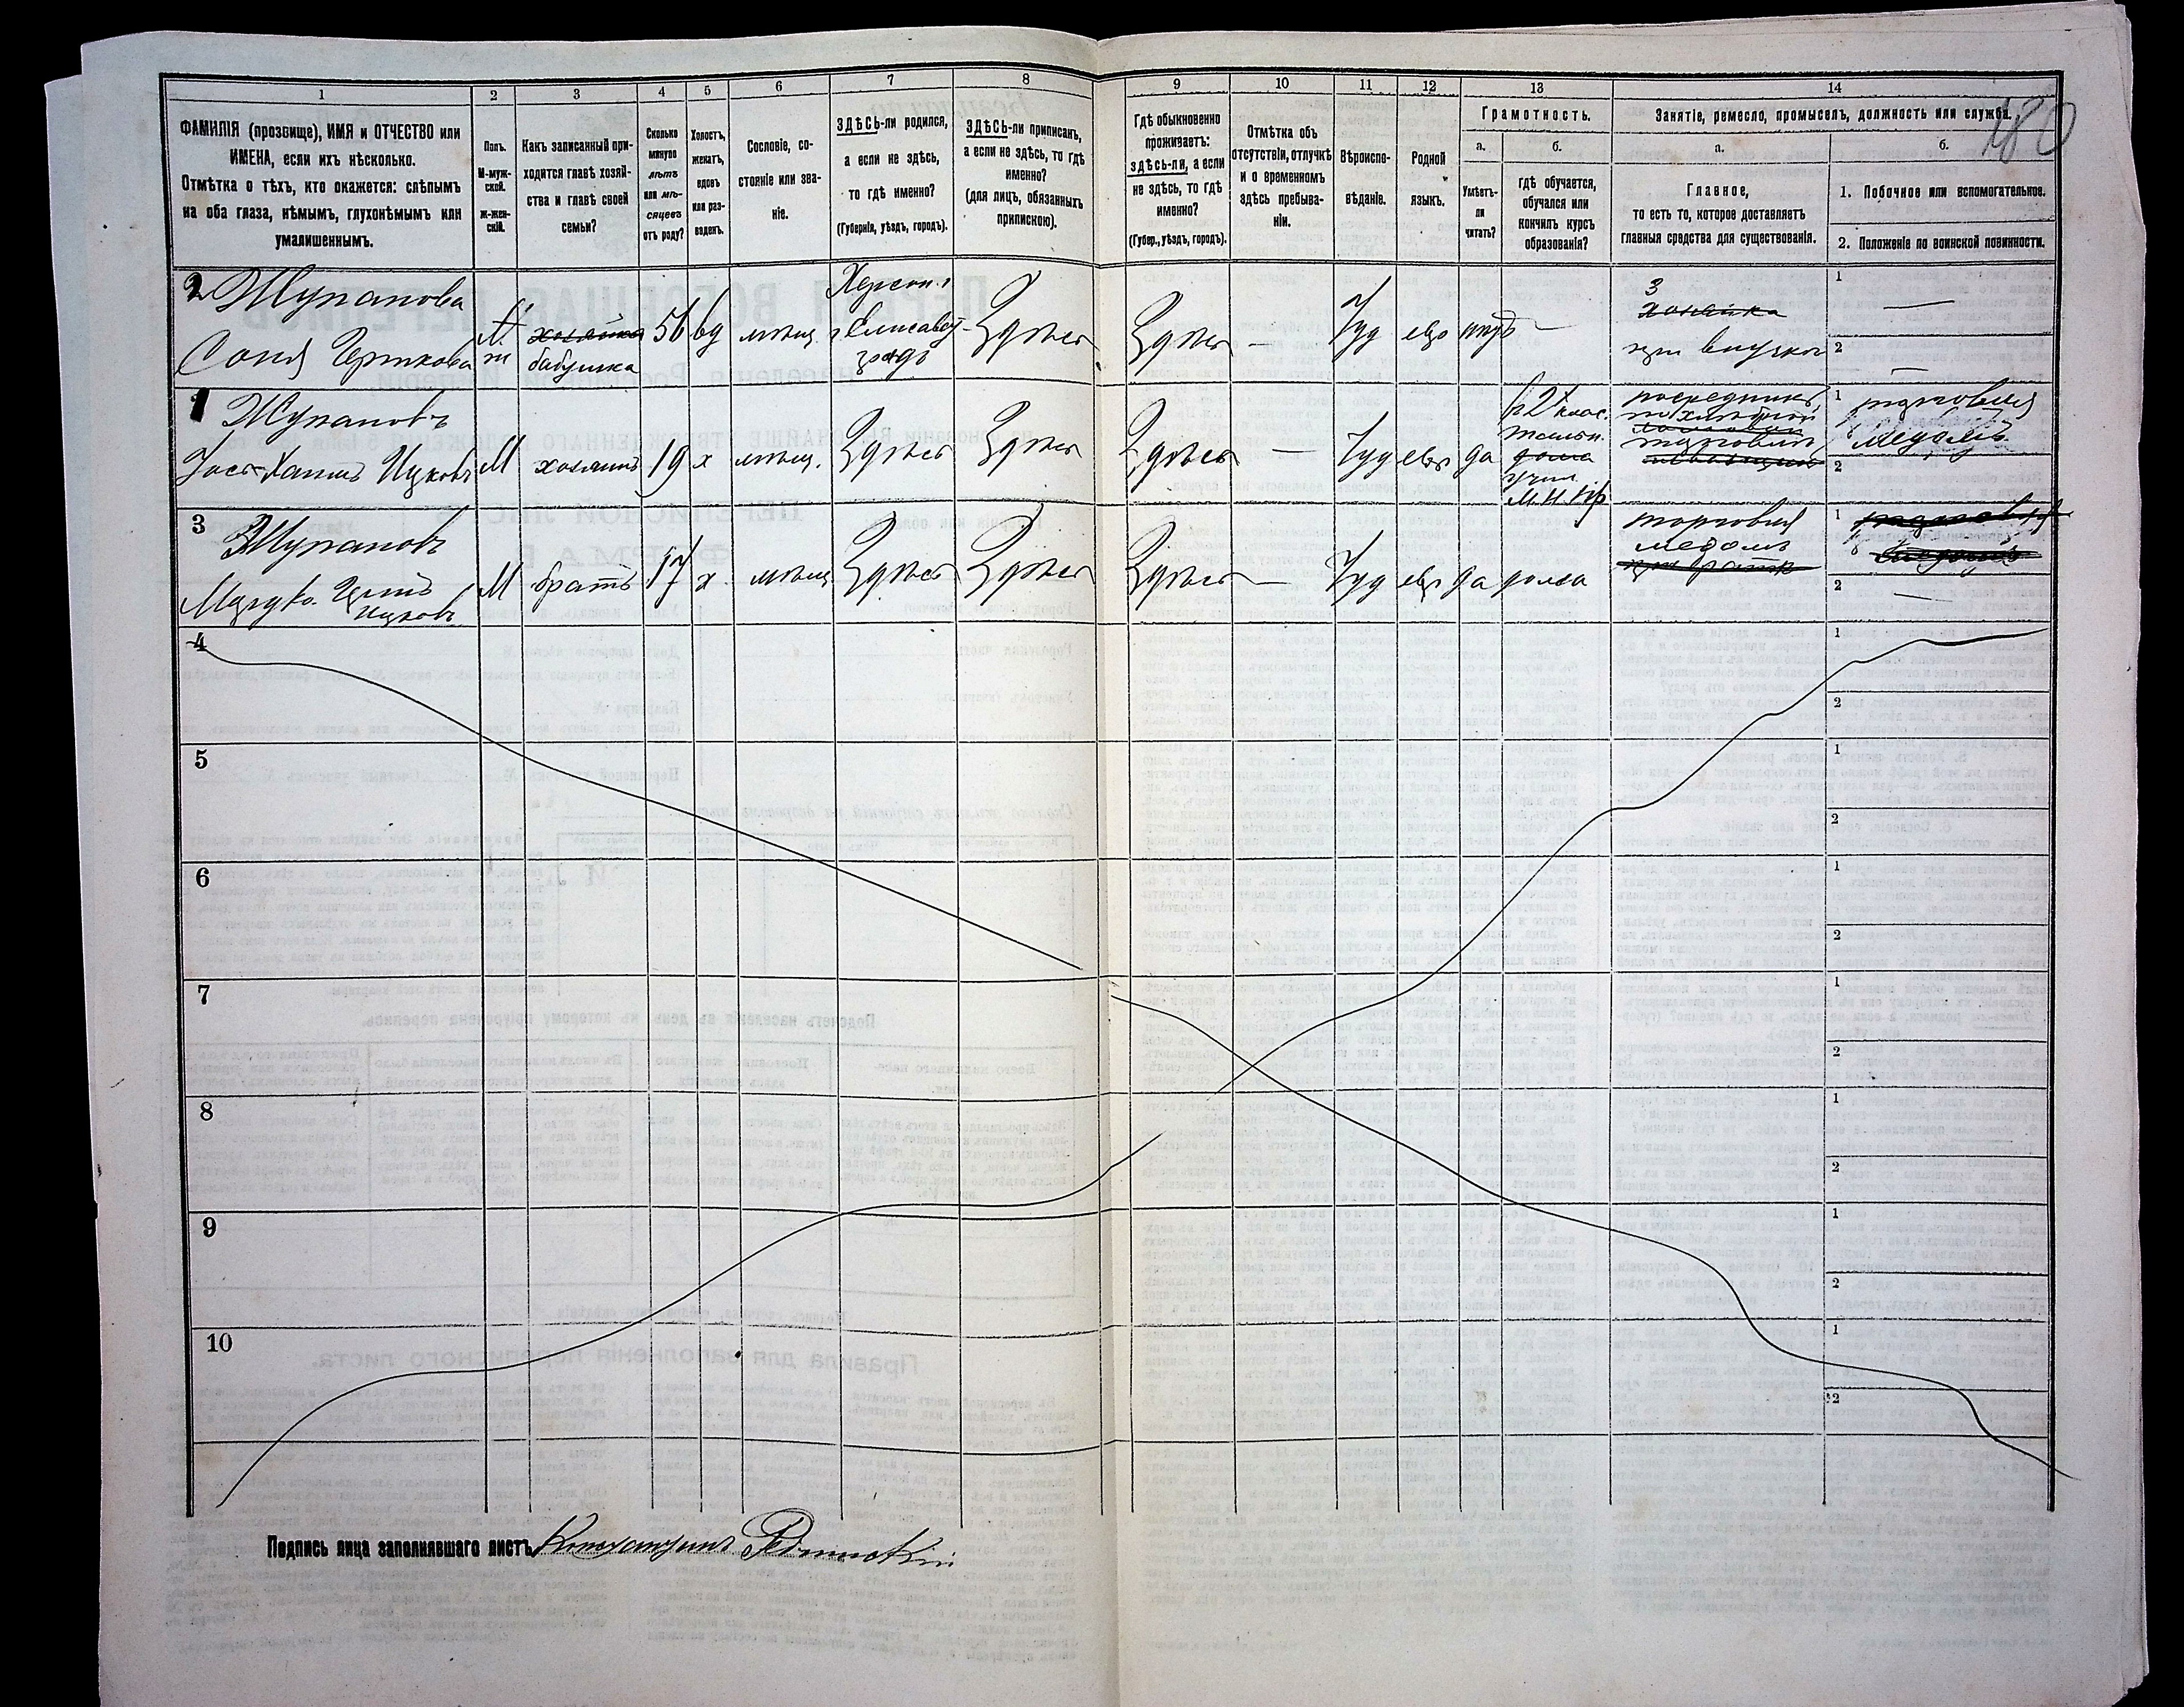 180
1 2 3 4 5 6 7 8 9 10 11 12 13 14
ФАМИЛІЯ (прозвище), ИМЯ и ОТЧЕСТВО или
ИМЕНА, если ихъ нѣсколько.
Отмѣтка о тѣхъ, кто окажется: слѣпымъ
на оба глаза, нѣмымъ, глухонѣмымъ или
умалишеннымъ.
Полъ.
М-муж-
ской.
ж-жен-
скій.
Какъ записанный при-
ходится главѣ хозяй-
ства и главѣ своей
семьи?
Сколько
минуло
лѣтъ
или мѣ-
сяцевъ
отъ роду?
Холостъ,
женатъ,
вдовъ
или раз-
веденъ.
Сословіе, со-
стояніе или зва-
ніе.
ЗДѢСЬ-ли родился,
а если не здѣсь,
то гдѣ именно?
(Губернія, уѣздъ, городъ).
ЗДѢСЬ-ли приписанъ,
а если не здѣсь, то гдѣ
именно?
(для лицъ, обязанныхъ
припискою).
Гдѣ обыкновенно
проживаетъ:
ЗДѢСЬ-ЛИ, а если
не здѣсь, то гдѣ
именно?
(Губер., уѣздъ, городъ).
Отмѣтка объ
отсутствіи, отлучкѣ
и о временномъ
здѣсь пребыва-
ніи.
Вѣроиспо-
вѣданіе.
Родной
языкъ.
Грамотность.
а. б.
Умѣетъ-
ли
читать?
гдѣ обучается,
обучался или
кончилъ курсъ
образованія?
Занятіе, ремесло, промыселъ, должность или служба.
а. б.
Главное,
то есть то, которое доставляетъ
главныя средства для существованія.
1. Побочное или вспомогательное.
2. Положеніе по воинской повинности.
2 Жупанова
Соня
ж
хозяйка
бабушка
56 вд мѣщ.
Херсон.
Елисавет-
градъ
Здѣсь Здѣсь — Іуд евр нѣтъ —
3
хозяйка
при внукѣ
1 —
2 —
1 Жупановъ
Ицковъ
М хозяинъ 19 х мѣщ. Здѣсь Здѣсь Здѣсь — Іуд евр да
въ 2х клас.
дома
учил.
М. Н. Пр
посредникъ
торговли
1 торговля
медомъ
2
3 Жупановъ
Ицковъ
М братъ 17 х. мѣщ Здѣсь Здѣсь Здѣсь — Іуд евр да дома
торговля
медомъ
при братѣ
1 торговля
медомъ
2 —
4 1
2
5 1
2
6 1
2
7 1
2
8 1
2
9 1
2
10 1
2
Подпись лица заполнявшаго листъ Константинъ